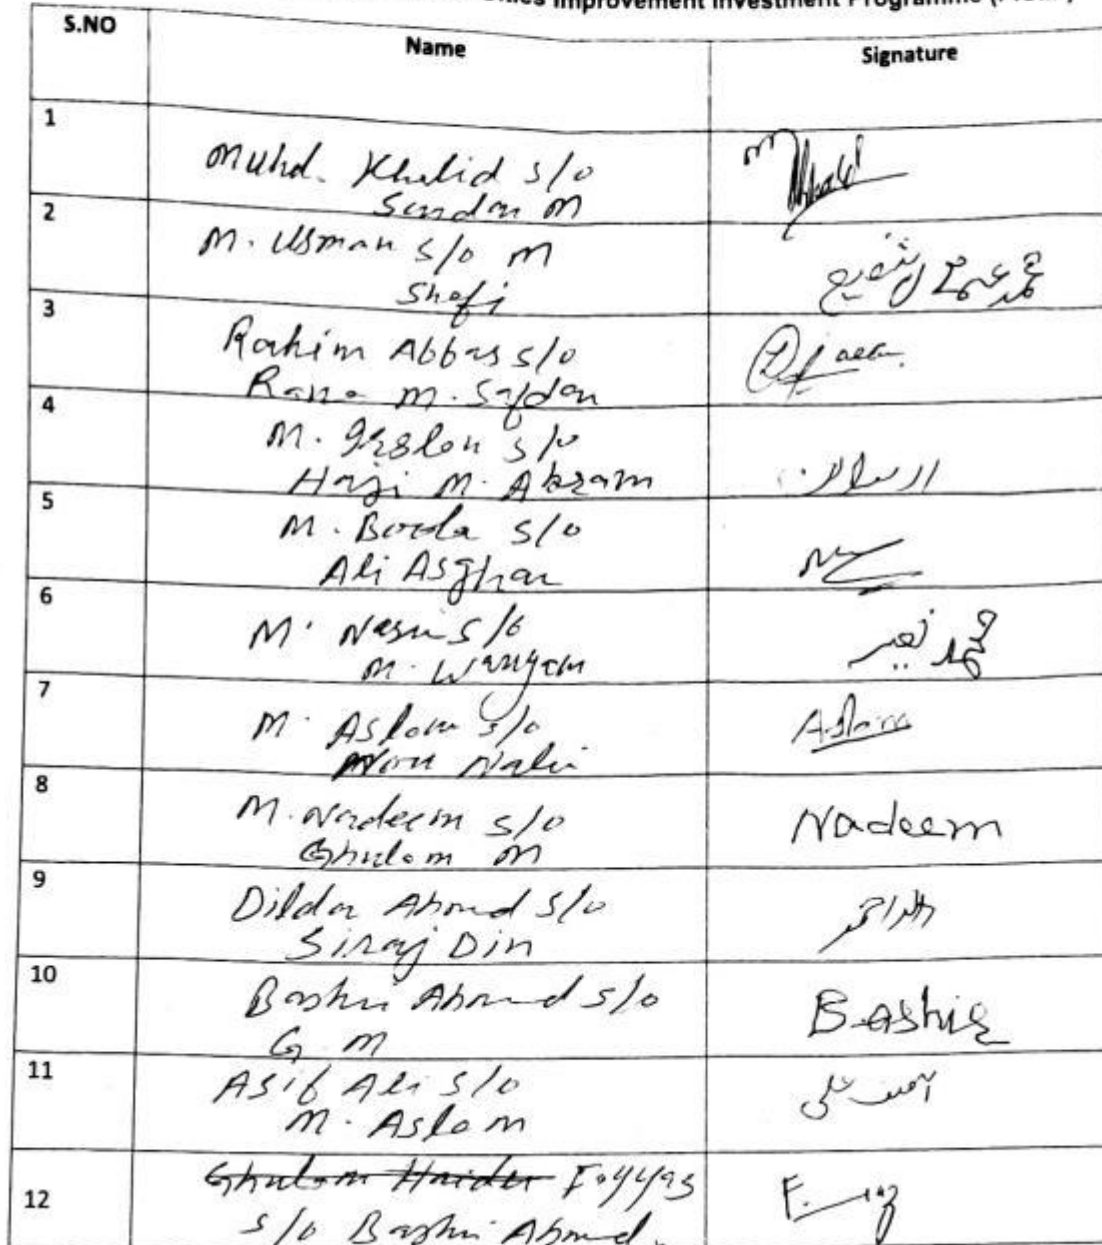 Improvement Investment Programme
S.NO Name Signature
1
Muhd. Khalid s/o
2
M. Usman s/o M
Shafi
محمد عثمان شفیع
3
Rahim Abbas s/o
Rana M. Safdar
4
M. Irslan s/o
Haji M. Akram
ارسلان
5
M. s/o
Ali Asghar
6
M. Nasir s/o
M. Waryam
محمد نصیر
7
M. Aslam s/o
Aslam
8
M. Nadeem s/o
Ghulam M
Nadeem
9
Dildar Ahmad s/o
Siraj Din
دلدار احمد
10
Bashir Ahmad s/o
G. M
Bashir
11
Asif Ali s/o
M. Aslam
آصف علی
12
Ghulam Haider Fayyas
s/o Bashir Ahmad